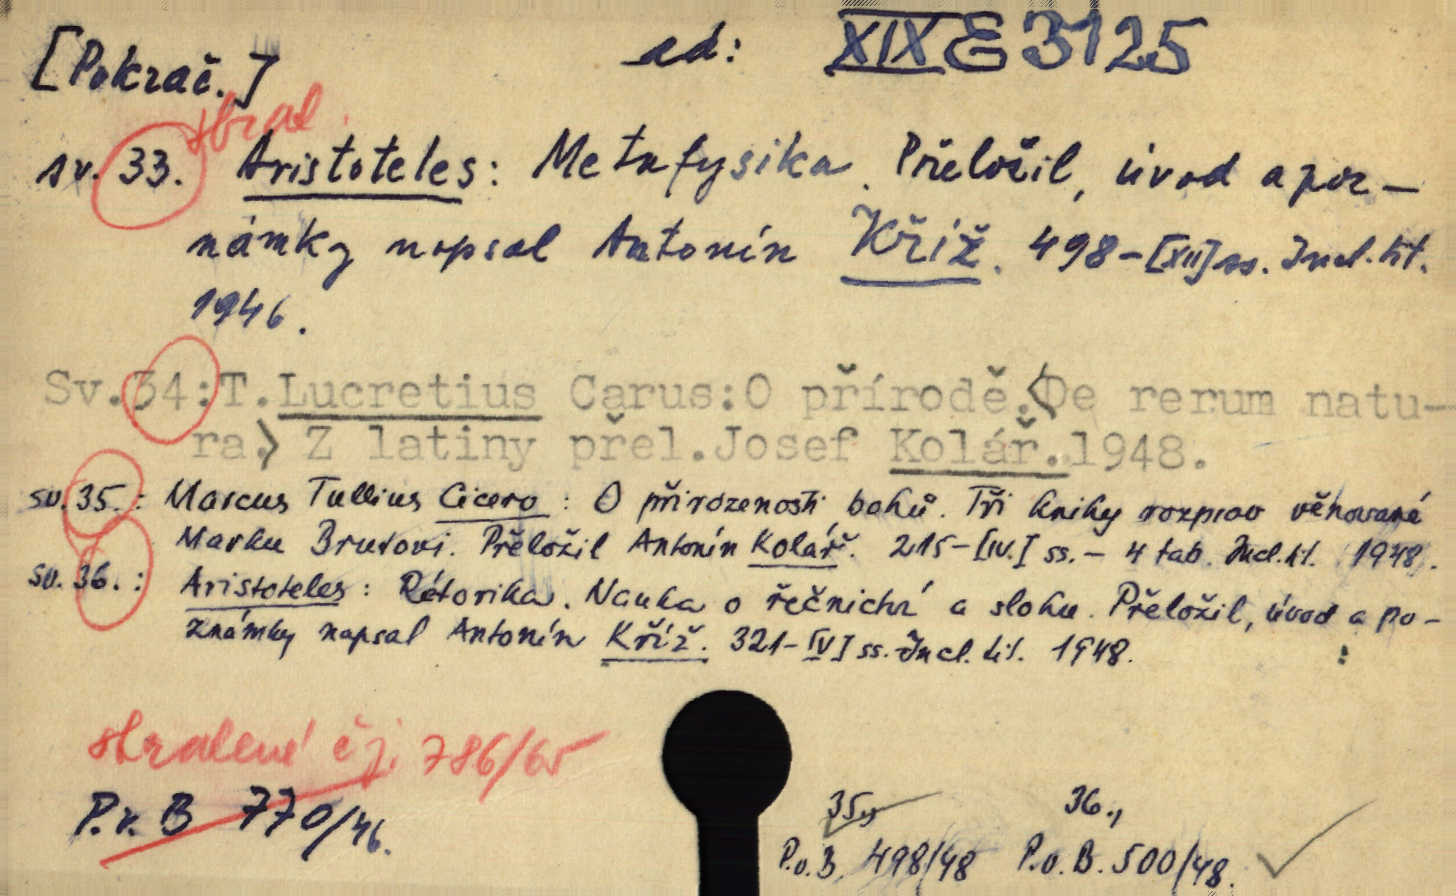 [Pokrač.] ad: XIX E 3125
sv. 33. Aristoteles: Metafysika. Přeložil, úvod a poz-
námky napsal Antonín Kříž. 498-[XII] ss. Incl. tit.
1946.
Sv.34:T.Lucretius Carus:O přírodě.(De rerum natu-
ra.) Z latiny přel.Josef Kolář.1948.
sv. 35.: Marcus Tullius Cicero: O přirozenosti bohů. Tři knihy rozprav věnované
Marku Brutovi. Přeložil Antonín Kolář. 215-[IV.] ss. - 4 tab. Incl. tit. 1948.
sv. 36.: Aristoteles: Rétorika. Nauka o řečnictví a slohu. Přeložil, úvod a po-
známky napsal Antonín Kříž. 321-[IV] ss. Incl. tit. 1948.
čj. 786/65
P.v.B 770/46.
35., 36.,
P.v.B. 498/48 P.v.B. 500/48.